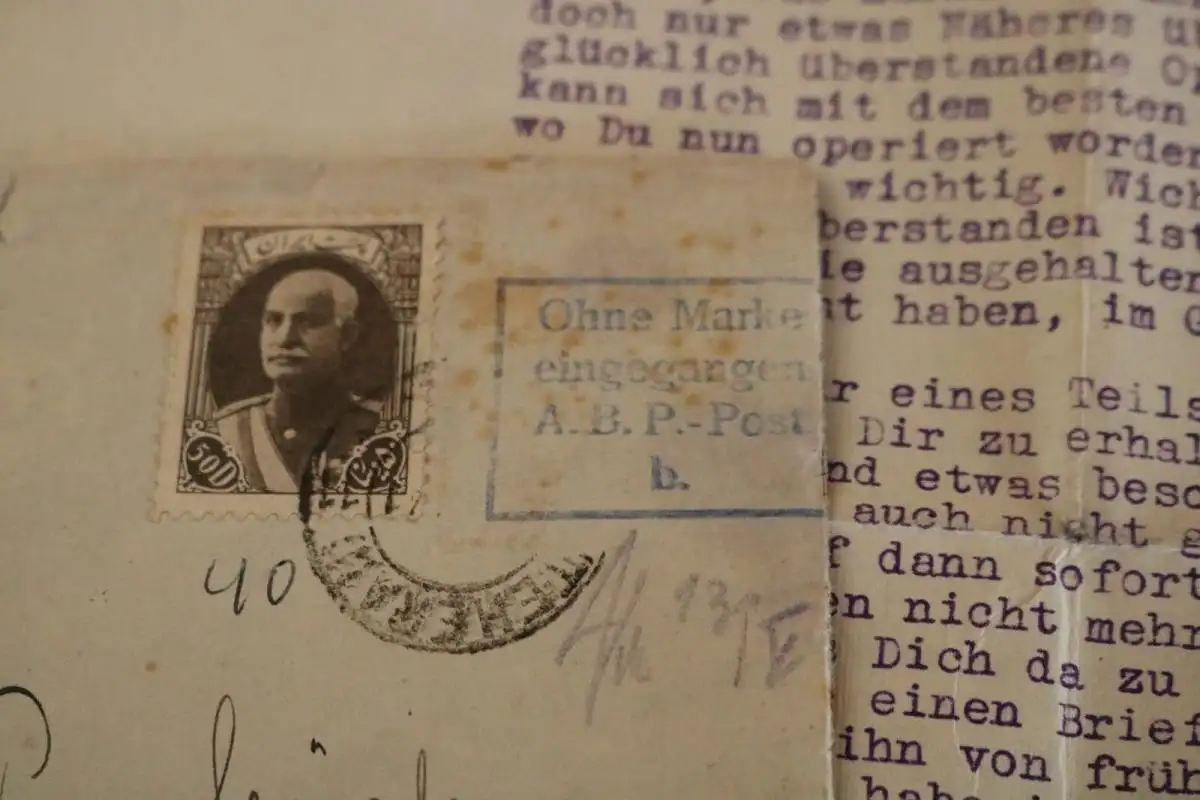 doch nur etwas Näheres
glücklich überstandene
kann sich mit dem besten
wo Du nun operiert worden
wichtig.
berstanden ist
ie ausgehalten
t haben, im G
r eines Teils
Dir zu erhal
nd etwas besc
auch nicht g
f dann sofort
en nicht mehr
Dich da zu
einen Brief
ihn von früh
50D
Ohne Marke
eingegangen
A.B.P.-Post
b.
TEHERAN
40